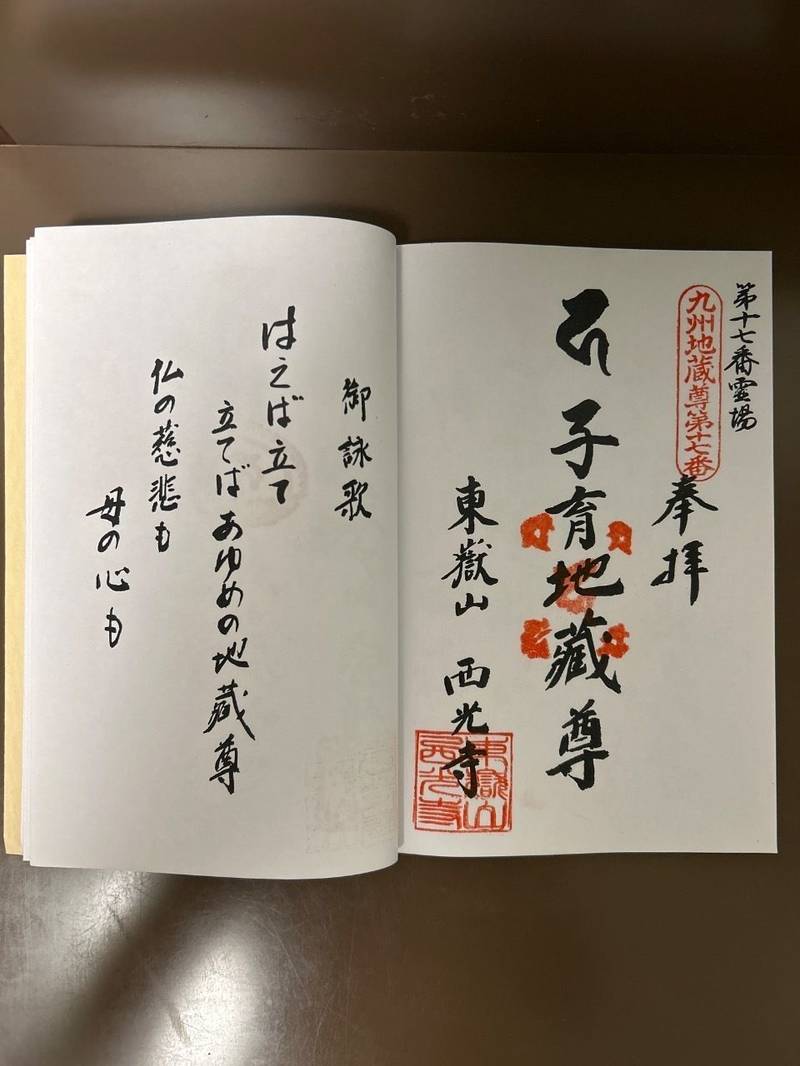 第十七番霊場
九州地蔵尊第十七番
奉拝
子育地蔵尊
東嶽山 西光寺
東嶽山
西光寺
御詠歌
はえば立て
立てばあゆめの地蔵尊
仏の慈悲も
母の心も